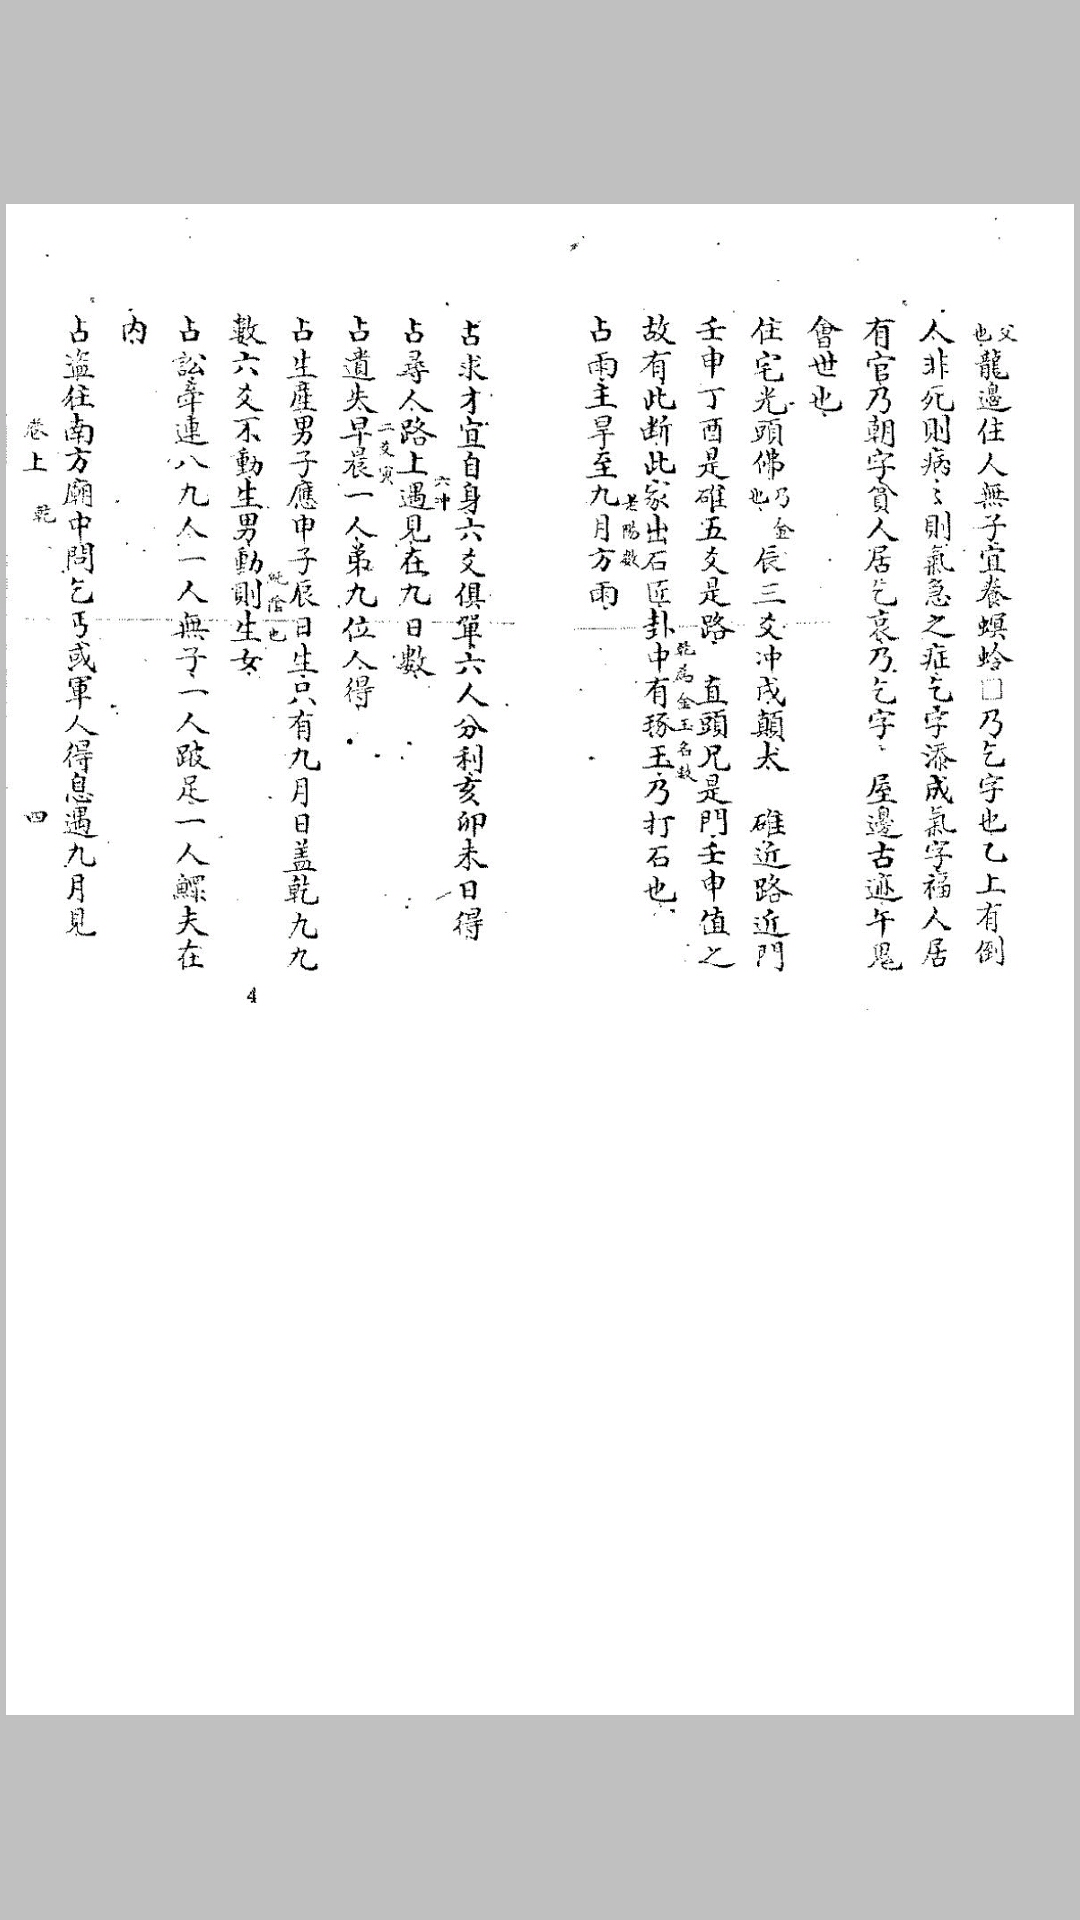 父也龍邊住人無子宜養螟蛉□乃乞字也乙上有倒
人非死則病〻則氣急之症乞字添成氣字福人居
有官乃朝字貧人居乞哀乃乞字 屋邊古迹午鬼
會世也
住宅光頭佛乃金也辰三爻冲戌顛犬 碓近路近門
壬申丁酉是碓五爻是路 直頭兄是門壬申值之
乾為金玉名數
故有此斷此家出石匠卦中有琢玉乃打石也
老陽數
占雨主旱至九月方雨
占求才宜自身六爻俱單六人分利亥卯未日得
六冲
占尋人路上遇見在九日數
二爻寅
占遺失早晨一人弟九位人得
占生產男子應申子辰日生只有九月日蓋乾九九
純陰也
數六爻不動生男動則生女
占訟牽連八九人一人無子一人跛足一人鰥夫在
內
占盜往南方廟中問乞丐或軍人得息遇九月見
卷上 乾 四
4